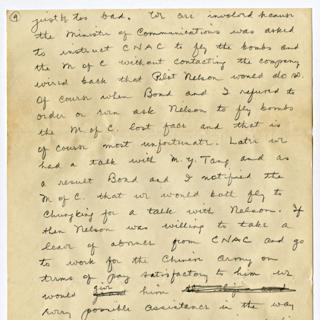 9
just too bad. We are involved because
the Minister of Communications was asked
to instruct CNAC to fly the bombs and
the M of C without contacting the company
wired back that Pilot Nelson would do so.
Of course when Bond and I refused to
order or even ask Nelson to fly bombs
the M. of C. lost face and that is
of course most unfortunate. Later we
had a talk with M. Y. Tang and as
a result Bond and I notified the
M of C. that we would both fly to
Chungking for a talk with Nelson. If
then Nelson was willing to take a
leave of absence from CNAC and go
to work for the Chinese Army on
terms of pay satisfactory to him we
would give him
every possible assistance in the way